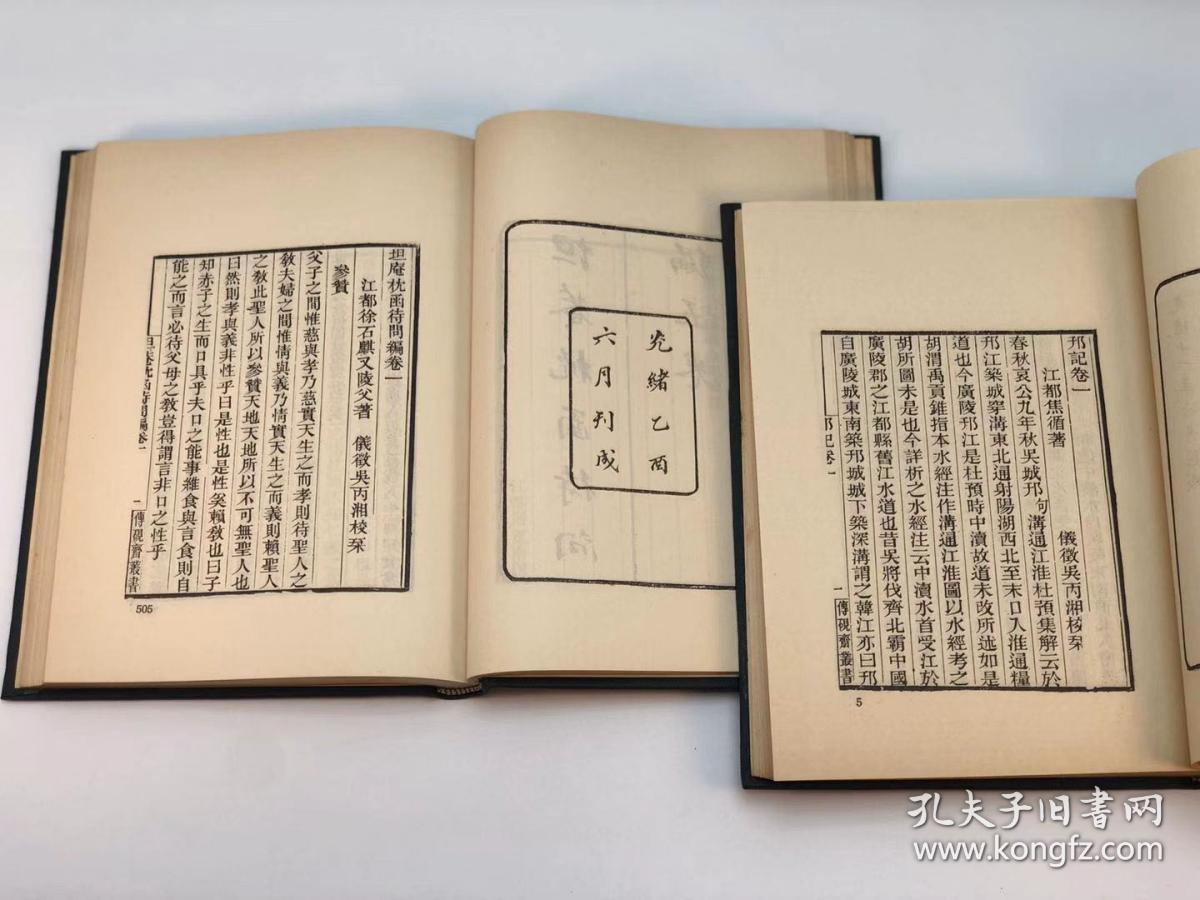 坦庵枕函待問編卷一
江都徐石麒又陵父著 儀徵吳丙湘校栞
參贊
父子之間惟慈與孝乃慈實天生之而孝則待聖人之
敎夫婦之間惟情與義乃情實天生之而義則賴聖人
之敎此聖人所以參贊天地天地所以不可無聖人也
曰然則孝與義非性乎曰是性也是性矣賴敎也曰子
知赤子之生而口具乎夫口之能事雖食與言食則自
能之而言必待父母之敎豈得謂言非口之性乎
坦庵枕函待問編卷一
一
傳硯齋叢書
505
光緒乙酉
六月刊成
邗記卷一
江都焦循著 儀徵吳丙湘校栞
春秋哀公九年秋吳城邗句溝通江淮杜預集解云於
邗江築城穿溝東北通射陽湖西北至末口入淮通糧
道也今廣陵邗江是杜預時中瀆故道未改所述如是
胡渭禹貢錐指本水經注作溝通江淮圖以水經考之
胡所圖未是也今詳析之水經注云中瀆水首受江於
廣陵郡之江都縣舊江水道也昔吳將伐齊北霸中國
自廣陵城東南築邗城城下築深溝謂之韓江亦曰邗
邗記卷一
一
傳硯齋叢書
5
孔夫子旧书网
www.kongfz.com